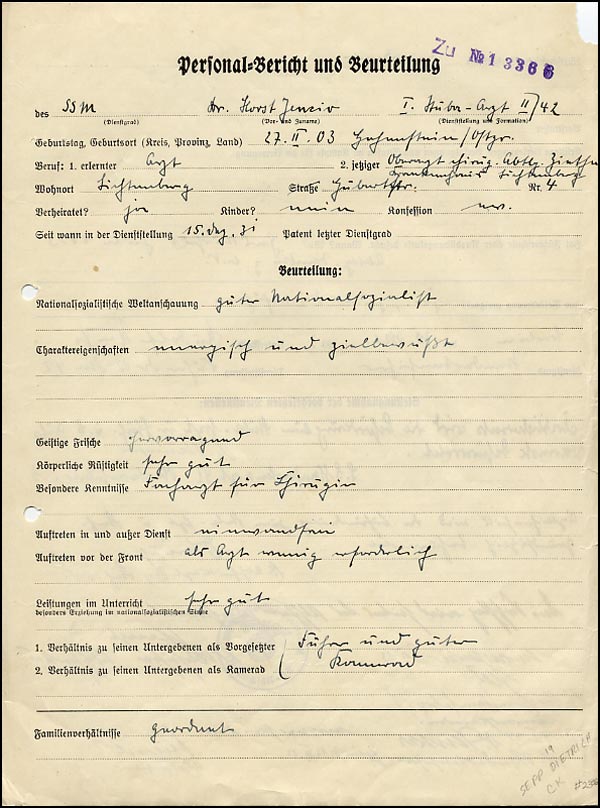 Zu № 13366
Personal-Bericht und Beurteilung
des SSM Dr. Horst I. Stuba-Arzt II/42
(Dienstgrad) (Vor- und Zuname) (Dienststellung und Formation)
Geburtstag, Geburtsort (Kreis, Provinz, Land) 27. II. 03 Hohenstein/Ostpr.
Beruf: 1. erlernter Arzt 2. jetziger Oberarzt chirug. Abtlg.
Krankenhaus Lichtenberg
Wohnort Lichtenberg Straße Hubertstr. Nr. 4
Verheiratet? ja Kinder? nein Konfession ev.
Seit wann in der Dienststellung 15. Dez. 31 Patent letzter Dienstgrad
Beurteilung:
Nationalsozialistische Weltanschauung guter Nationalsozialist
Charaktereigenschaften energisch und zielbewußt
Geistige Frische hervorragend
Körperliche Rüstigkeit sehr gut
Besondere Kenntnisse Facharzt für Chirugie
Auftreten in und außer Dienst einwandfrei
Auftreten vor der Front als Arzt wenig erforderlich
Leistungen im Unterricht sehr gut
besonders Erziehung im nationalsozialistischen Sinne
1. Verhältnis zu seinen Untergebenen als Vorgesetzter Führer und guter
2. Verhältnis zu seinen Untergebenen als Kamerad Kamerad
Familienverhältnisse geordnet
SEPP DIETRICH
19
CK